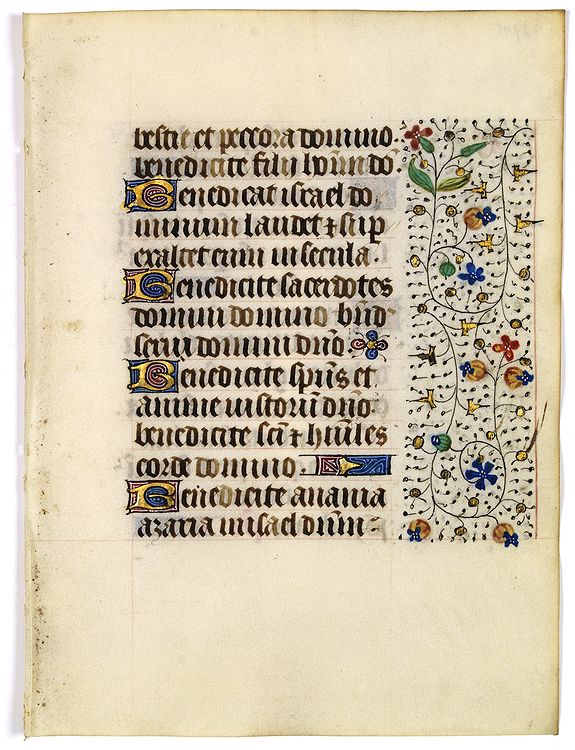 bestie et peccora domino
benedicite filij hoı̄m do
Benedicat israel do
minum laudet ⁊ sup
exaltet eum in secula
Benedicite sacerdotes
domini domino bn̄d
serui domini dn̄o.
Benedicite sp̄us et
anime iustorū dn̄o.
benedicite sc̄i ⁊ hūiles
corde domino.
Benedicite anania
azaria misael dnm̄